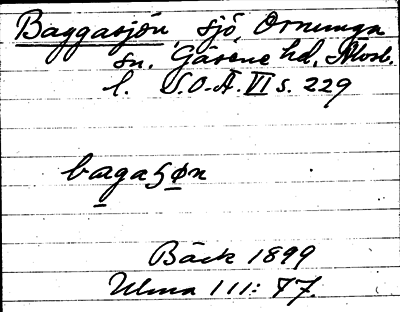 Baggasjön, sjö, Ornunga
sn. Gäsene hd, Älvsb.
l. S.O.Ä. VI s. 229
bagaʃøn
Bäck 1899
Ulma 111: 77.